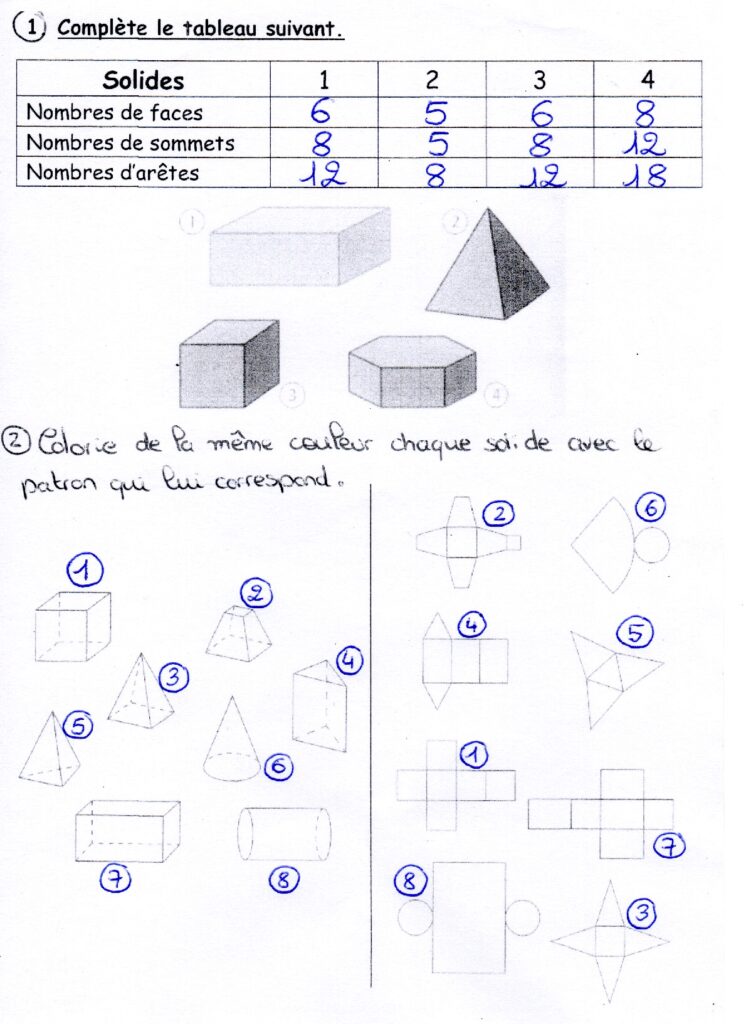 1 Complète le tableau suivant.
Solides 1 2 3 4
Nombres de faces 6 5 6 8
Nombres de sommets 8 5 8 12
Nombres d'arêtes 12 8 12 18
1 2
3 4
2 Colorie de la même couleur chaque solide avec le
patron qui lui correspond.
2 6
1 2
4 5
3 4
5 6
1
7
7 8
8 3